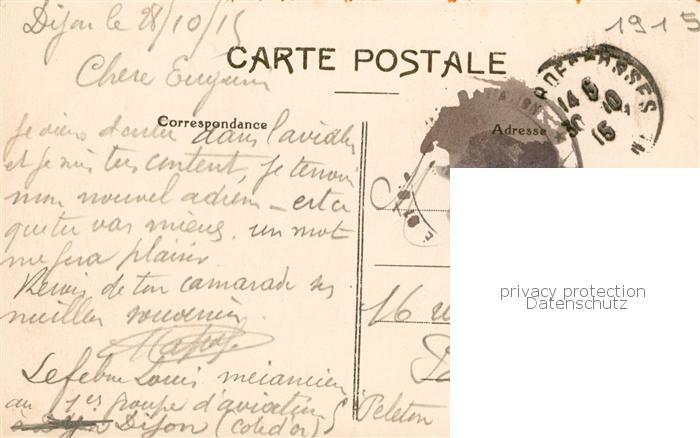 Dijon le 28/10/15
1915
CARTE POSTALE
Chere
Correspondance
Adresse
14 5
30 10
15
je viens d'entrer dans l'aviation
et je suis tres content, je t'envoi
mon nouvel adresse - est ce
que tu vas mieux. un mot
me fera plaisir
Recois de ton camarade ses
meilleur souvenirs
Lefebvre Louis mecanicien
au 1er groupe d'aviation
Dijon (Cote d'or)
16
Peleton
privacy protection
Datenschutz